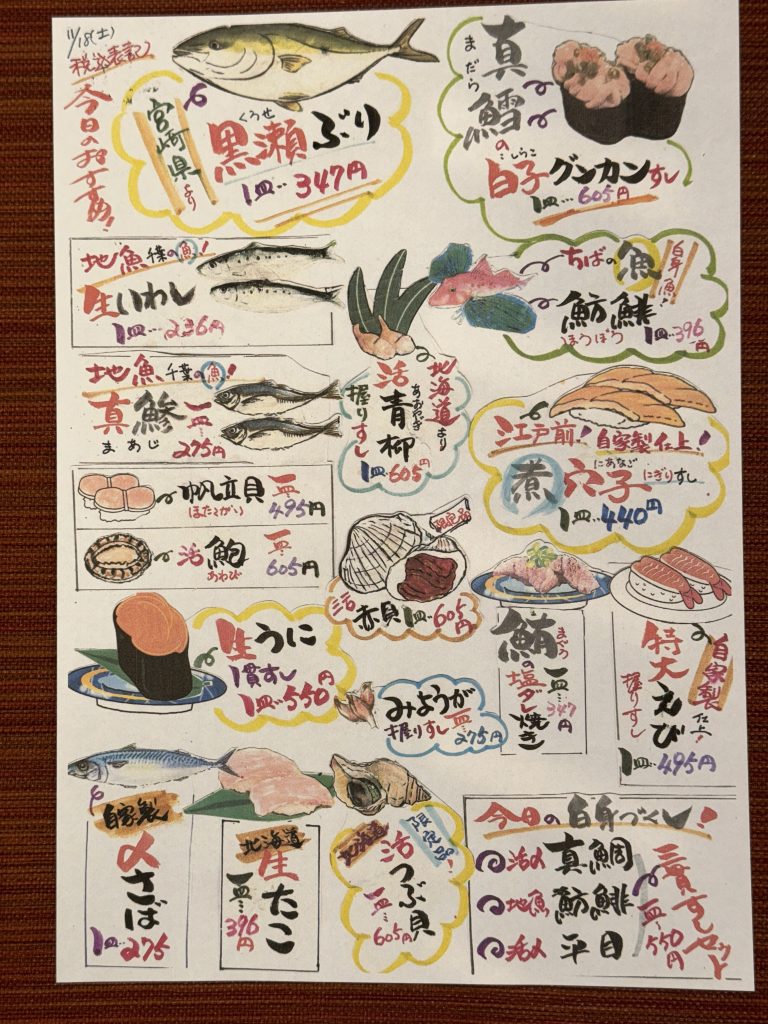 11/18(土)
税込表記
今日のおすすめ!
宮崎県より
くろせ
黒瀬ぶり
1皿…347円
まだら
真鱈の
しらこ
白子グンカンすし
1皿…605円
地魚 千葉の魚!
生いわし
1皿…236円
ちばの魚
白身魚!
魴鮄
ほうぼう
1皿…396円
地魚 千葉の魚!
真鯵
まあじ
一皿…275円
北海道より
活青柳
あおやぎ
握りすし
1皿…605円
江戸前! 自家製仕上!
にあなご
煮穴子にぎりすし
1皿…440円
帆立貝
ほたてがい
一皿…495円
活鮑
あわび
一皿…605円
限定品
活赤貝1皿…605円
生うに
1貫すし
1皿…550円
みょうが
握りすし一皿…275円
まぐろ
鮪の塩ダレ焼き
一皿…347円
自家製仕上
特大えび
握りすし
1皿…495円
自家製
〆さば
1皿…275
北海道
生たこ
一皿…396円
北海道
限定品
活つぶ貝
一皿…605円
今日の白身づくし!
活〆 真鯛
地魚 魴鮄
活〆 平目
三貫すしセット
一皿…550円